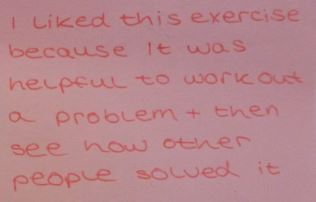 I liked this exercise
because it was
helpful to work out
a problem + then
see how other
people solved it